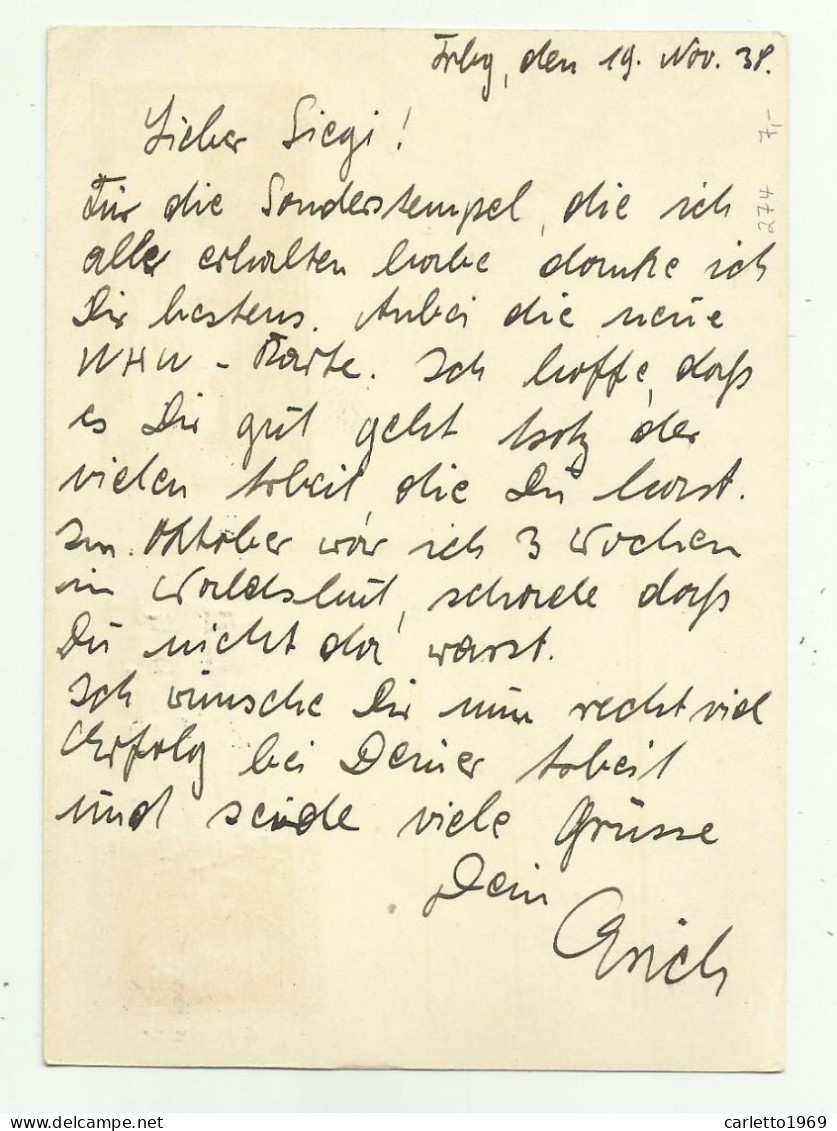 Frbg, den 19. Nov. 38.
7,-
274
Lieber Siegi!
Für die Sonderstempel, die ich
alle erhalten habe danke ich
Dir bestens. Anbei die neue
WHW-Karte. Ich hoffe, daß
es Dir gut geht trotz der
vielen Arbeit, die Du hast.
Im Oktober war ich 3 Wochen
in Waldshut, schade daß
Du nicht da warst.
Ich wünsche Dir nun recht viel
Erfolg bei Deiner Arbeit
und sende viele Grüsse
Dein
Erich
delcampe.net
carletto1969